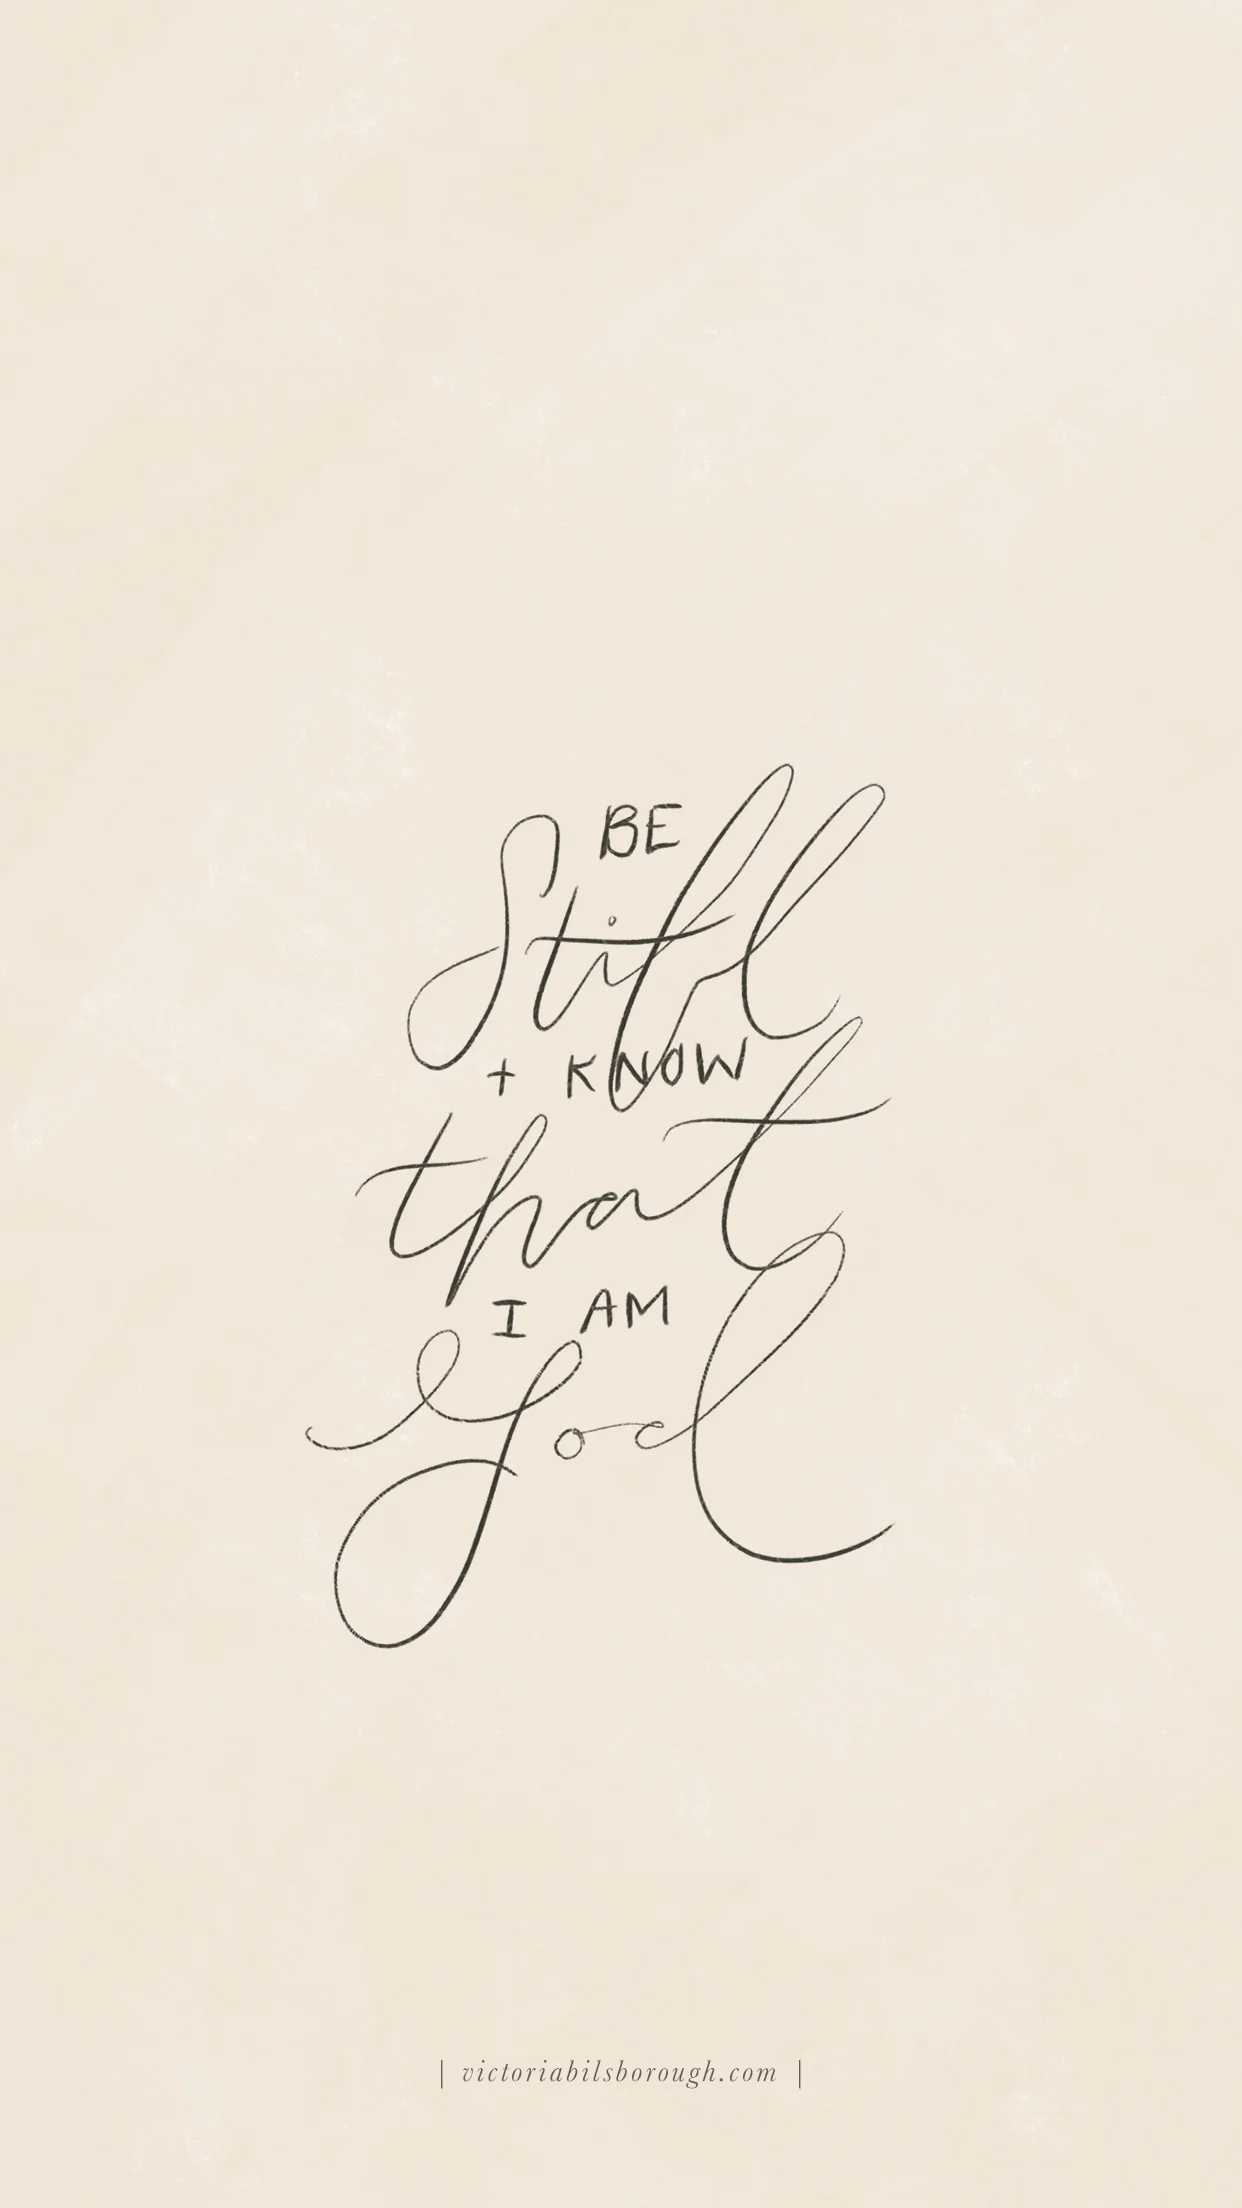 BE
Still
+ KNOW
that
I AM
God
| victoriabilsborough.com |